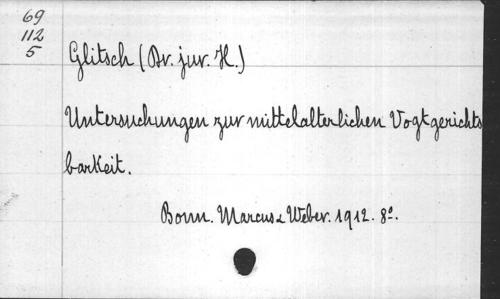 69
112
5
Glitsch (Dr. jur. H.)
Untersuchungen zur mittelalterlichen Vogtgerichts
barkeit.
Bonn. Marcus & Weber. 1912. 8°.